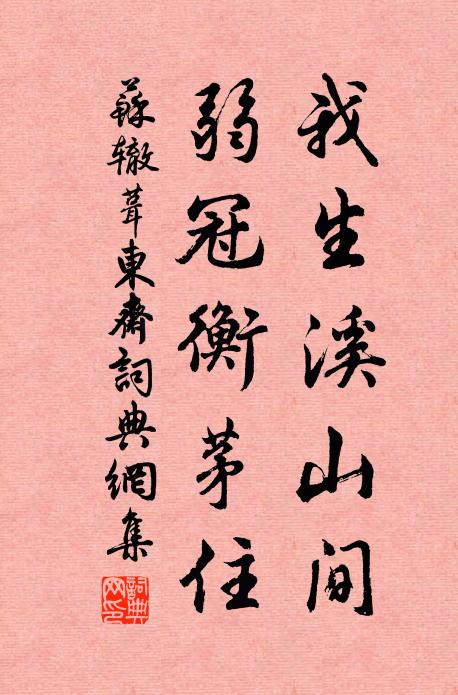 我生溪山間
弱冠衡茅住
蘇轍葺東齋詞典網集
詞典網印